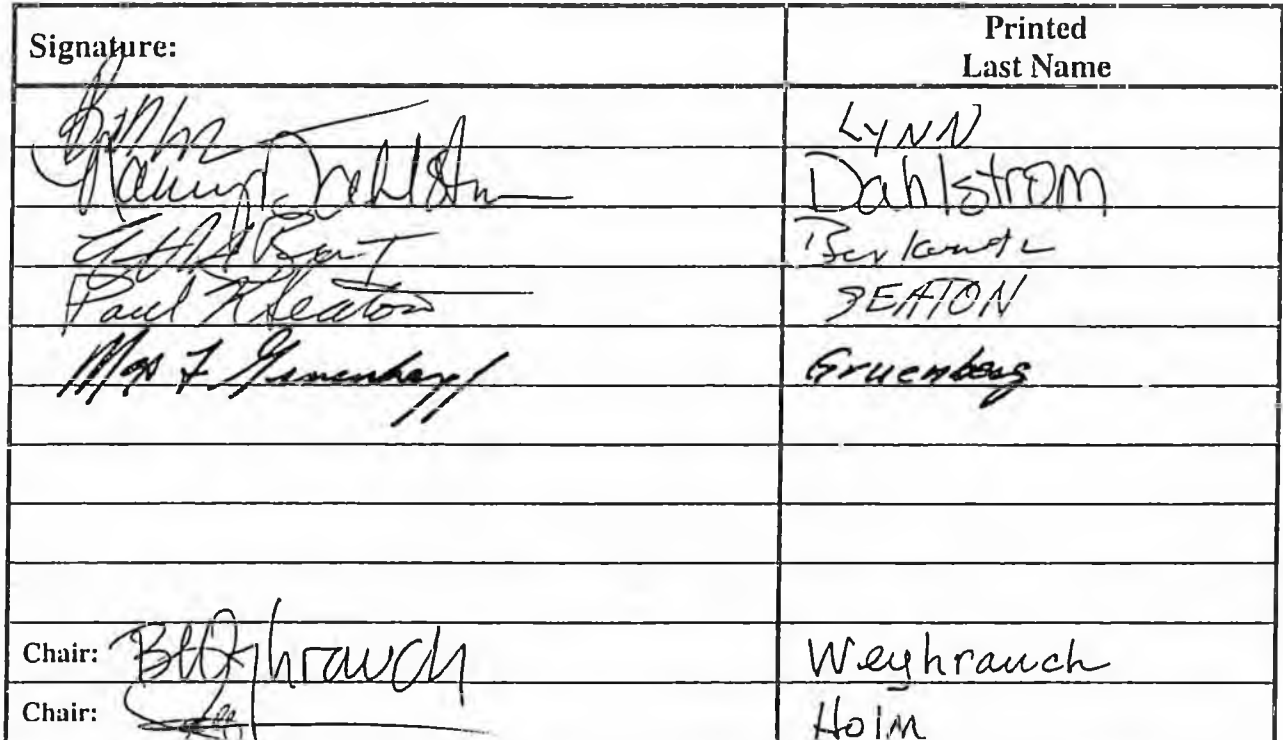 Signature: Printed
Last Name
LYNN
Nancy Dahlstrom Dahlstrom
Berkowitz
Paul K Seaton SEATON
Max F Gruenberg Gruenberg
Chair: B Weyhrauch Weyhrauch
Chair: Holm